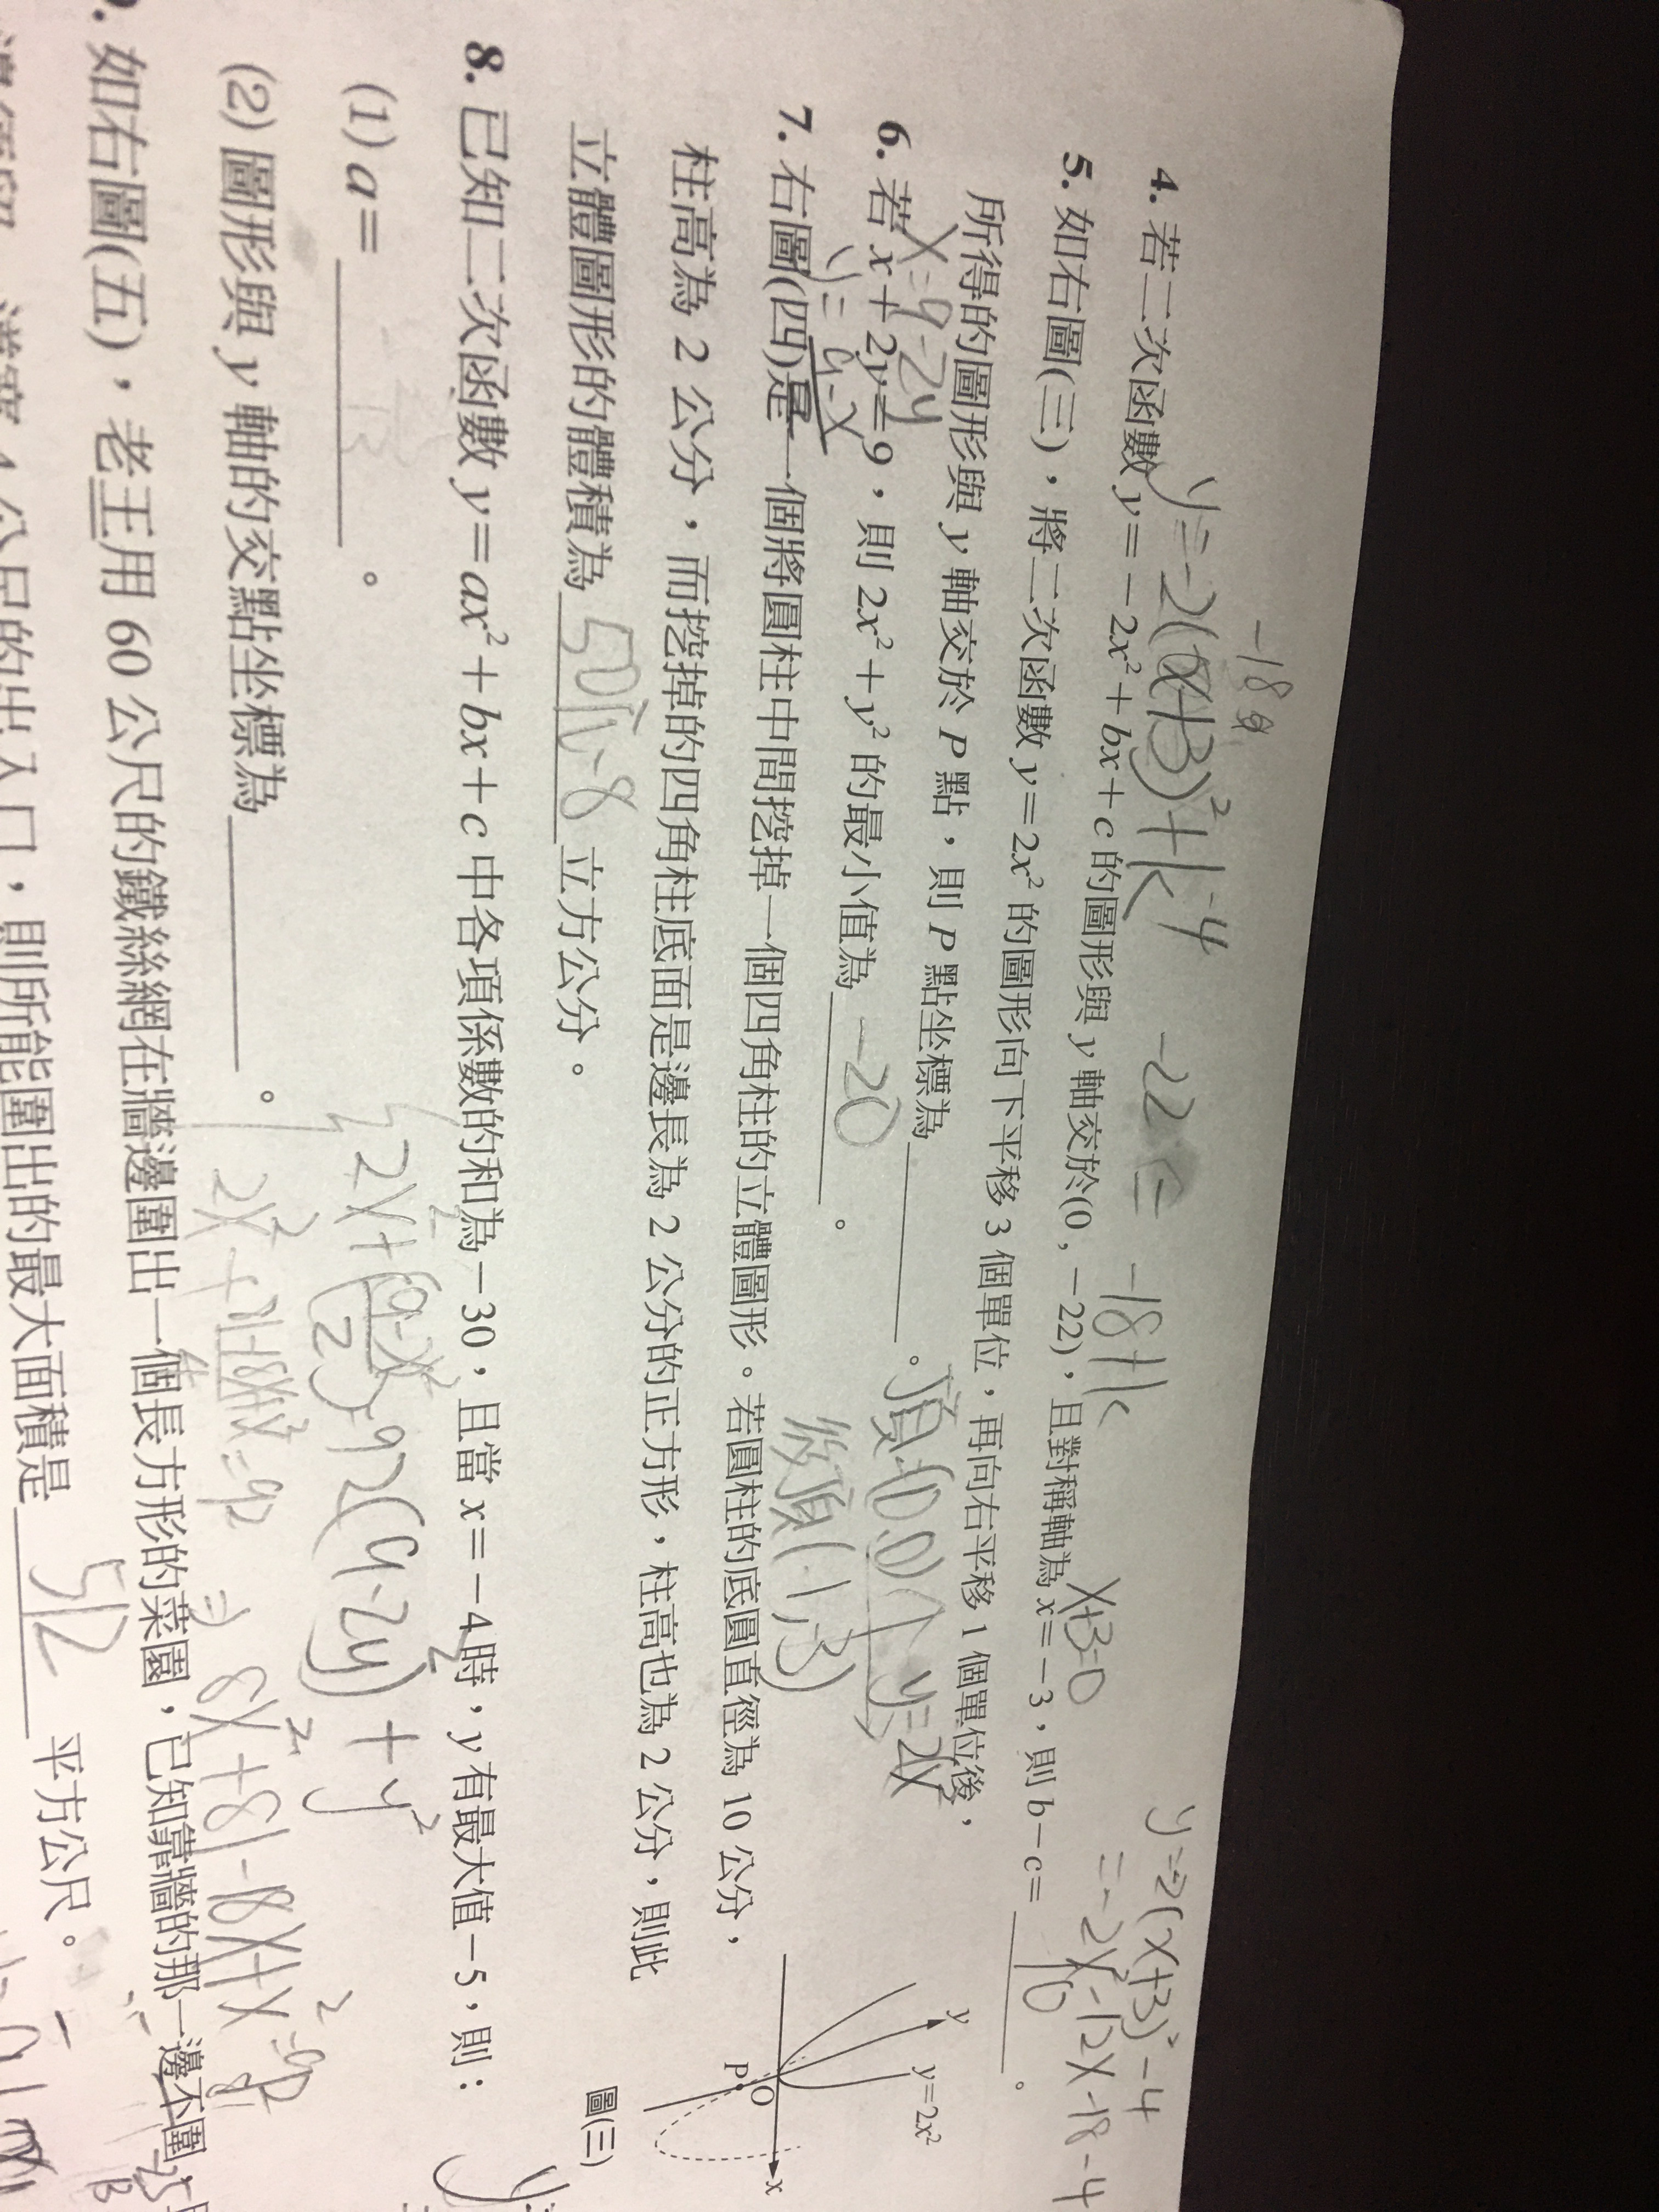 -18
y=-2(x+3)²+k -4 -22= -18+k y=-2(x+3)²-4
4. 若二次函數 y=-2x²+bx+c 的圖形與 y 軸交於(0,-22),且對稱軸為 x=-3,則 b-c= 10 。
x+3=0 =-2x²-12x-18-4
5. 如右圖(三),將二次函數 y=2x² 的圖形向下平移 3 個單位,再向右平移 1 個單位後,
所得的圖形與 y 軸交於 P 點,則 P 點坐標為 。
頂(0,0) y=2x²
x=9-2y
6. 若 x+2y=9,則 2x²+y² 的最小值為 -20 。
頂(-1,-3)
7. 右圖(四)是一個將圓柱中間挖掉一個四角柱的立體圖形。若圓柱的底圓直徑為 10 公分,
柱高為 2 公分,而挖掉的四角柱底面是邊長為 2 公分的正方形,柱高也為 2 公分,則此
立體圖形的體積為 50π-8 立方公分。
y
y=2x²
O
x
P
圖(三)
8. 已知二次函數 y=ax²+bx+c 中各項係數的和為-30,且當 x=-4 時,y 有最大值-5,則:
(1) a= 。
2(9-2y)²+y²
(2) 圖形與 y 軸的交點坐標為 。
8x²+81-18x+x²
如右圖(五),老王用 60 公尺的鐵絲網在牆邊圍出一個長方形的菜園,已知靠牆的那一邊不圍,
公尺的出入口,則所能圍出的最大面積是 512 平方公尺。